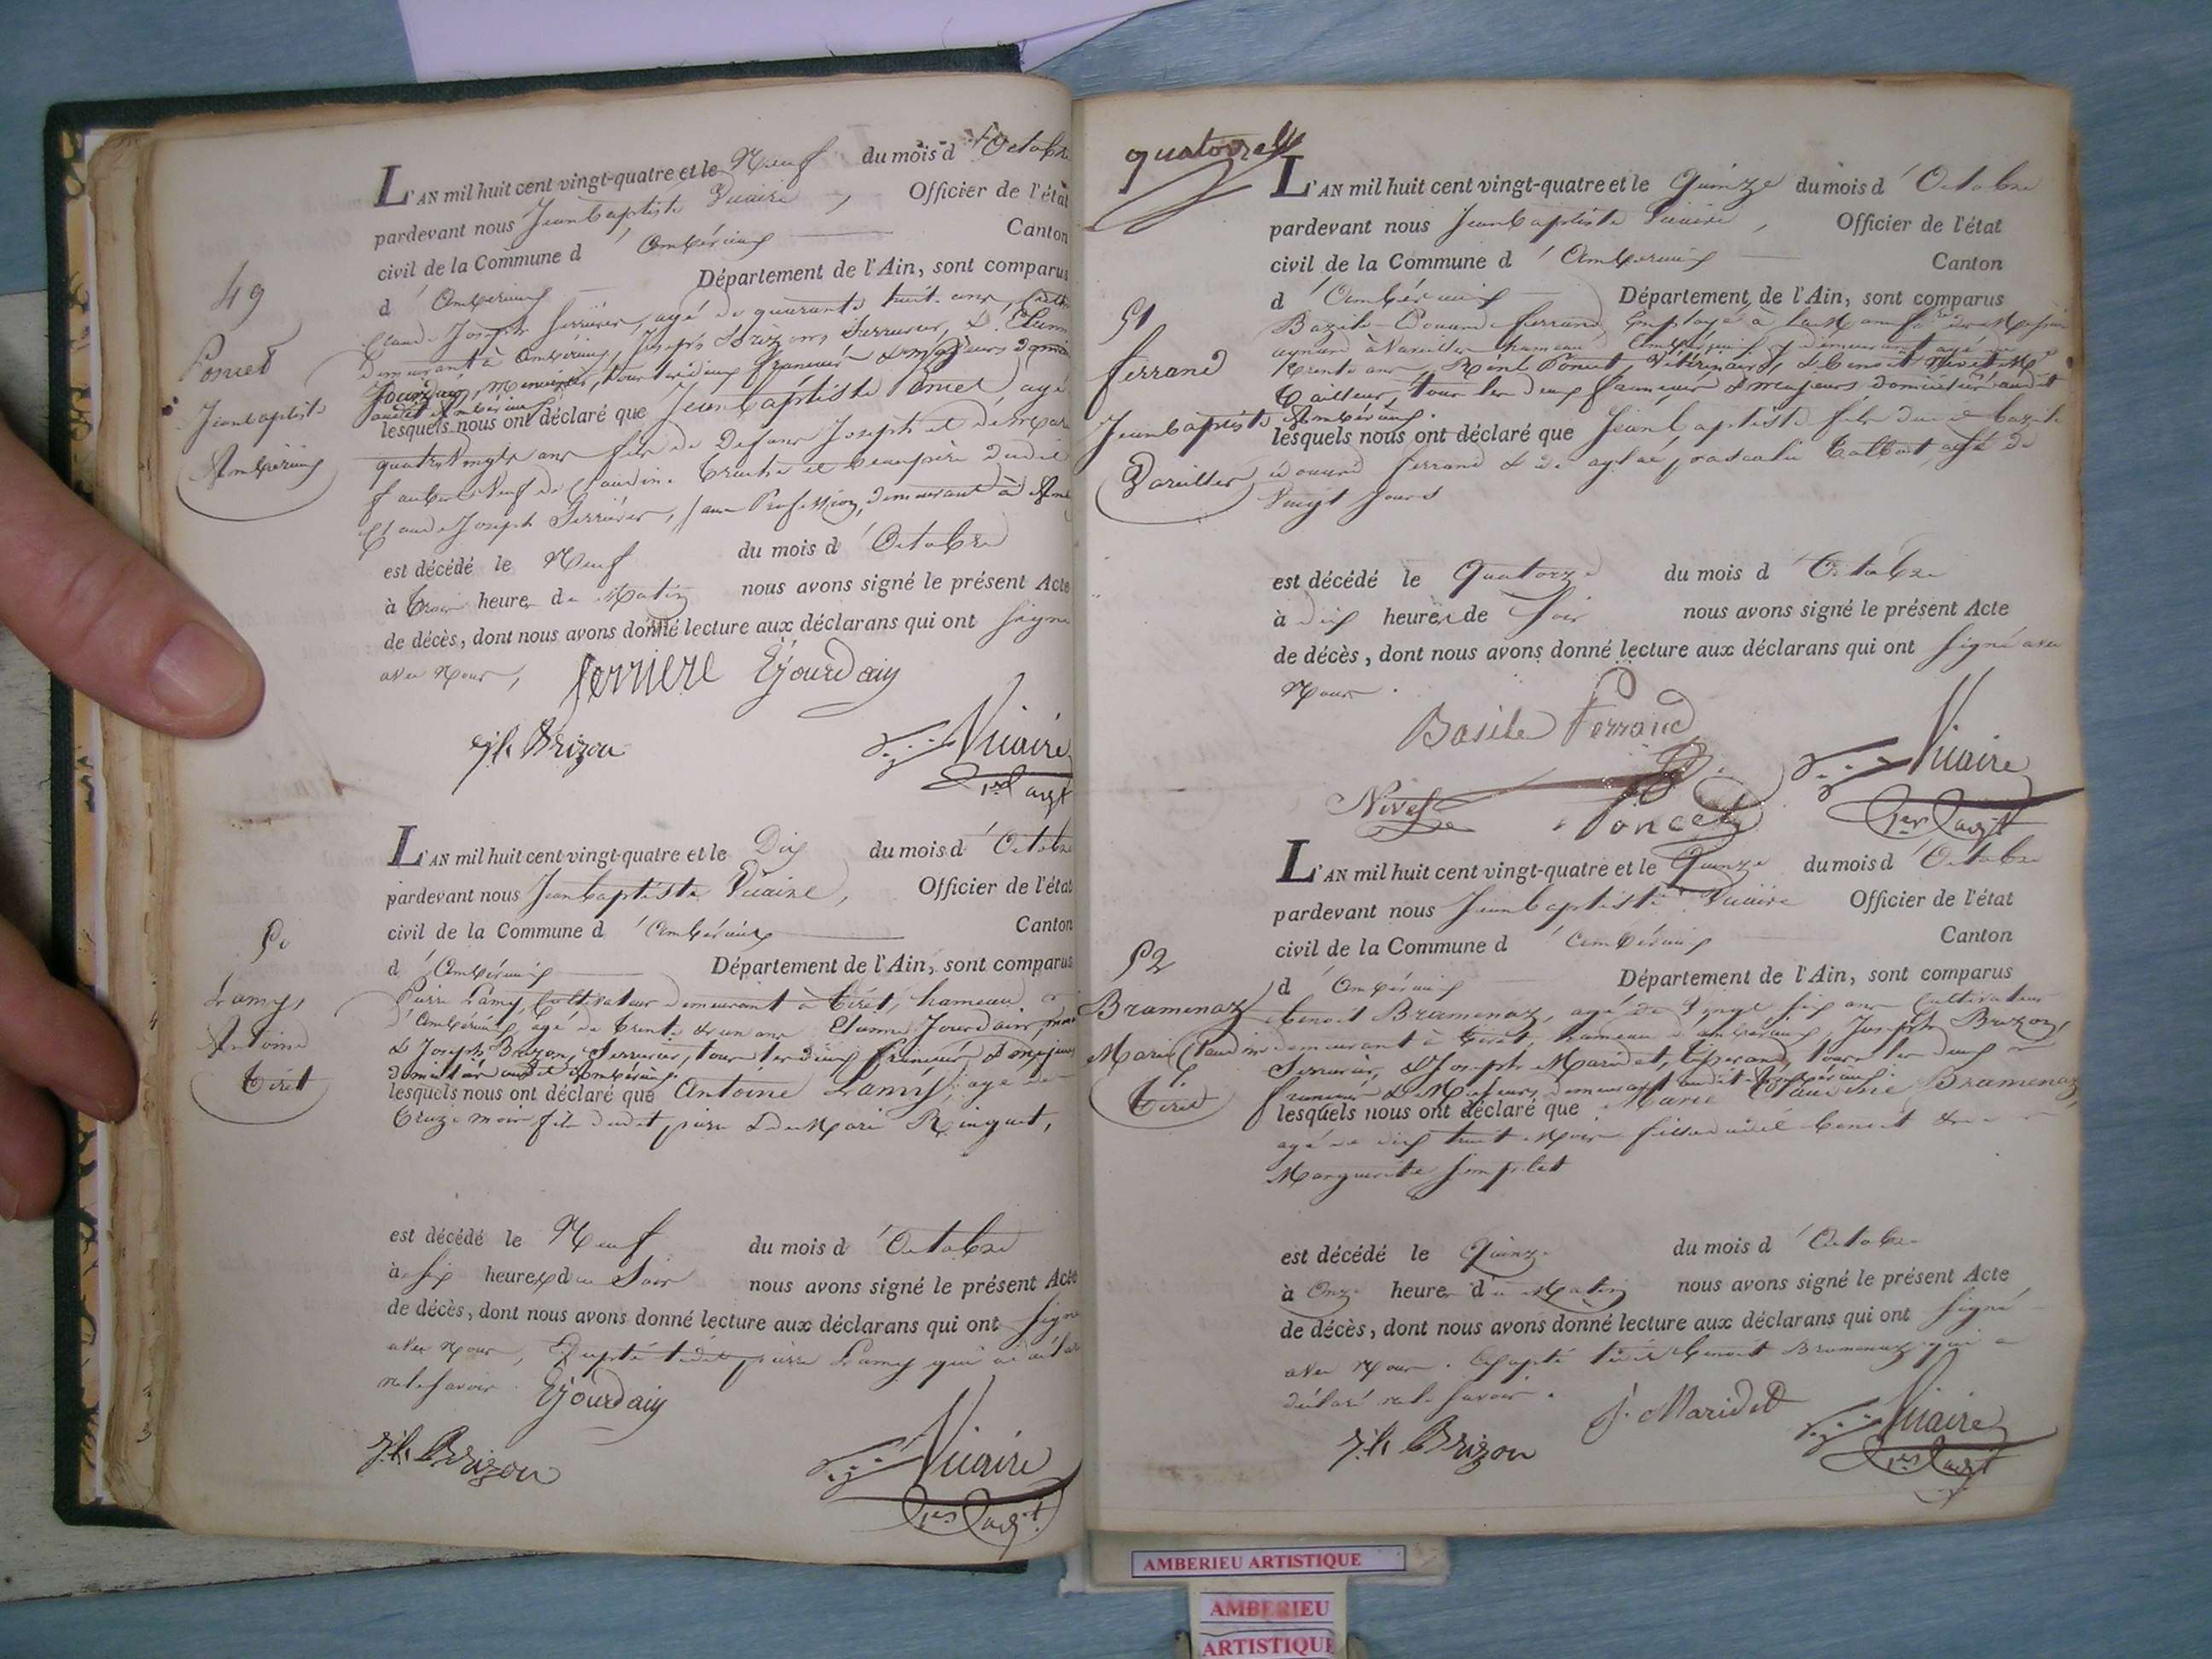 L'AN mil huit cent vingt-quatre et le Neuf du mois d'Octobre
pardevant nous Jean baptiste Vicaire, Officier de l'état
civil de la Commune d'Ambérieux Canton
d'Ambérieux Département de l'Ain, sont comparus
49
Poncet
Jean baptiste
Ambérieux
Claude Joseph Ferrière, agé de quarante huit ans,
demeurant à Ambérieux, Joseph Brizon, Serrurier, & Etienne
Jourdain, Menuisier, tous les deux français & majeurs
audit Ambérieux
lesquels nous ont déclaré que Jean baptiste Poncet agé
quatre vingts ans fils de Defunt Joseph et de
veuf de Claudine et beaupère dudit
Claude Joseph Ferrière, sans Profession, demeurant à
est décédé le Neuf du mois d'Octobre
à trois heures du Matin nous avons signé le présent Acte
de décès, dont nous avons donné lecture aux déclarans qui ont signé
avec Nous,
ferriere Ejourdain
Jh Brizon
Vicaire
1er adjt
L'AN mil huit cent vingt-quatre et le Dix du mois d'Octobre
pardevant nous Jean baptiste Vicaire, Officier de l'état
civil de la Commune d'Ambérieux Canton
d'Ambérieux Département de l'Ain, sont comparus
50
Lamy,
Antoine
Tiret
Pierre Lamy, Cultivateur demeurant à tiret, hameau
d'Ambérieux, agé de trente & un ans Etienne Jourdain,
& Joseph Brizon, Serrurier, tous les deux français & majeurs
domiciliés audit Ambérieux
lesquels nous ont déclaré que Antoine Lamy, agé de
treize mois fils dudit pierre & de Marie Ringuet,
est décédé le Neuf du mois d'Octobre
à six heures du Soir nous avons signé le présent Acte
de décès, dont nous avons donné lecture aux déclarans qui ont signé
avec Nous, Excepté ledit pierre Lamy qui a déclaré
ne le savoir. Ejourdain
Jh. Brizon
Vicaire
1er adjt
quatorze
L'AN mil huit cent vingt-quatre et le Quinze du mois d'Octobre
pardevant nous Jean baptiste Vicaire, Officier de l'état
civil de la Commune d'Ambérieux Canton
d'Ambérieux Département de l'Ain, sont comparus
51
ferrand
Jean baptiste
Vareilles
Bazile Edouard ferrand Employé à la
à Vareilles hameau d'Ambérieux y demeurant agé de
trente ans, Réné Poncet, Vétérinaire, & Benoit Nivet
Tailleur, tous les deux français & majeurs domiciliés audit
Ambérieux.
lesquels nous ont déclaré que Jean baptiste fils dudit bazile
edouard ferrand & de aglaé pascalie talbot, agé de
Vingt jours
est décédé le Quatorze du mois d'Octobre
à dix heures de Soir nous avons signé le présent Acte
de décès, dont nous avons donné lecture aux déclarans qui ont signé avec
Nous.
Basile Ferrand
Nivet
Poncet
Vicaire
1er adjt
L'AN mil huit cent vingt-quatre et le Quinze du mois d'Octobre
pardevant nous Jean baptiste Vicaire Officier de l'état
civil de la Commune d'Ambérieux Canton
d'Ambérieux Département de l'Ain, sont comparus
52
Bramenaz
Marie Claudine
Tiret
benoit Bramenaz, agé de Vingt six ans Cultivateur
demeurant à tiret, hameau d'ambérieux, Joseph Brizon,
Serrurier, & Joseph Maridet, Tisserand, tous les deux
français & Majeurs demeurant audit Ambérieux
lesquels nous ont déclaré que Marie Claudine Bramenaz,
agé de dix huit Mois fille dudit benoit & de
Marguerite
est décédé le Quinze du mois d'Octobre
à Onze heures du Matin nous avons signé le présent Acte
de décès, dont nous avons donné lecture aux déclarans qui ont signé
avec Nous. Excepté ledit benoit Bramenaz qui a
déclaré ne le savoir.
J. Maridet
Jh Brizon
Vicaire
1er adjt
AMBERIEU ARTISTIQUE
AMBERIEU
ARTISTIQUE